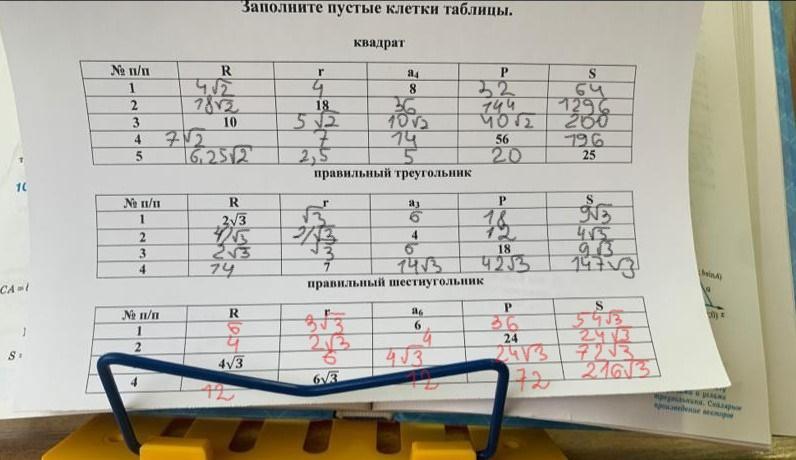 Заполните пустые клетки таблицы.
квадрат
№ п/п R r a₄ P S
1 4√2 4 8 32 64
2 18√2 18 36 144 1296
3 10 5√2 10√2 40√2 200
4 7√2 7 14 56 196
5 6,25√2 2,5 5 20 25
правильный треугольник
№ п/п R r a₃ P S
1 2√3 √3 6 18 9√3
2 4/√3 2/√3 4 12 4√3
3 2√3 √3 6 18 9√3
4 14 7 14√3 42√3 147√3
правильный шестиугольник
№ п/п R r a₆ P S
1 6 3√3 6 36 54√3
2 4 2√3 4 24 24√3
4√3 6 4√3 24√3 72√3
4 12 6√3 12 72 216√3
CA =
S :
произведение векторов